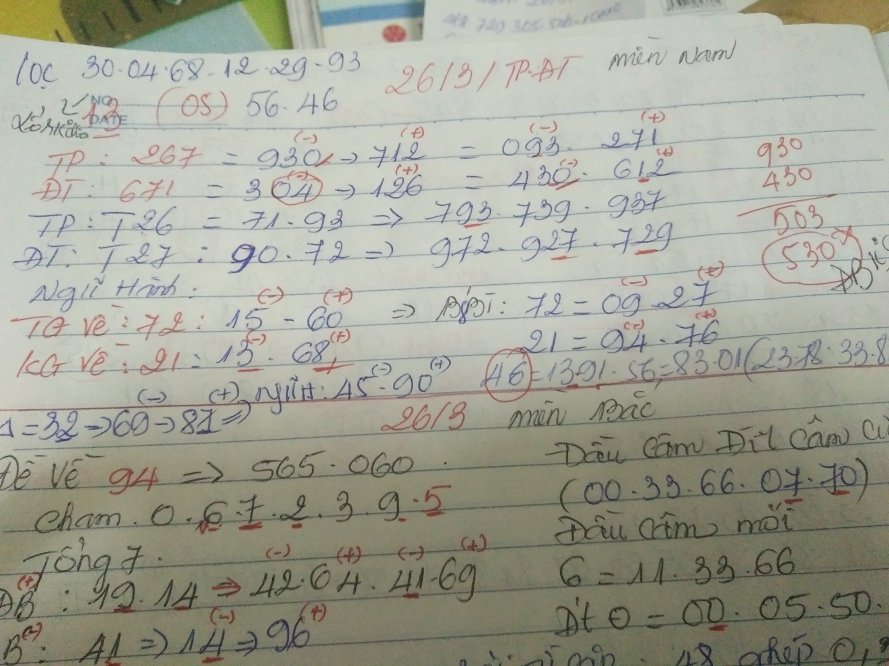 lọc 30.04.68.12.29.93
26/3/TP.ĐT miền Nam
13 (05) 56.46
NO.
DATE
TP: 267 = 930 (-) → 712 (+) = 093 (-). 271 (+)
930
ĐT: 671 = 304 (-) → 126 (+) = 430 (-). 612 (+)
430
TP: T26 = 71.93 => 793.739.937
503
ĐT: T27 : 90.72 => 972.927.729
530
Ngũ Hành:
TG Về: 72: 15 (-) - 60 (+) => 72 = 09 (-). 27 (+)
KG Về: 21: 13 (-). 68 (+)
21 = 94 (-). 76 (+)
45 (-). 90 (+)
46 = 13.91. 56 = 83.01 (23.78.33.8
1 = 32 → 69 (-) → 87 (+) =>
26/3 miền Bắc
Đề Về 94 => 565.060.
Đầu Câm Đít Câm
Chạm. 0.6.7.2.3.9.5
(00.33.66.07.70)
Tổng 7.
Đầu Câm mới
ĐB (+): 19.14 => 42 (-). 64 (+). 41 (-). 69 (+)
6 = 11.33.66
B (-): 41 => 14 (-) => 96 (+)
Đít 0 = 00. 05.50.
48 ghép 0,